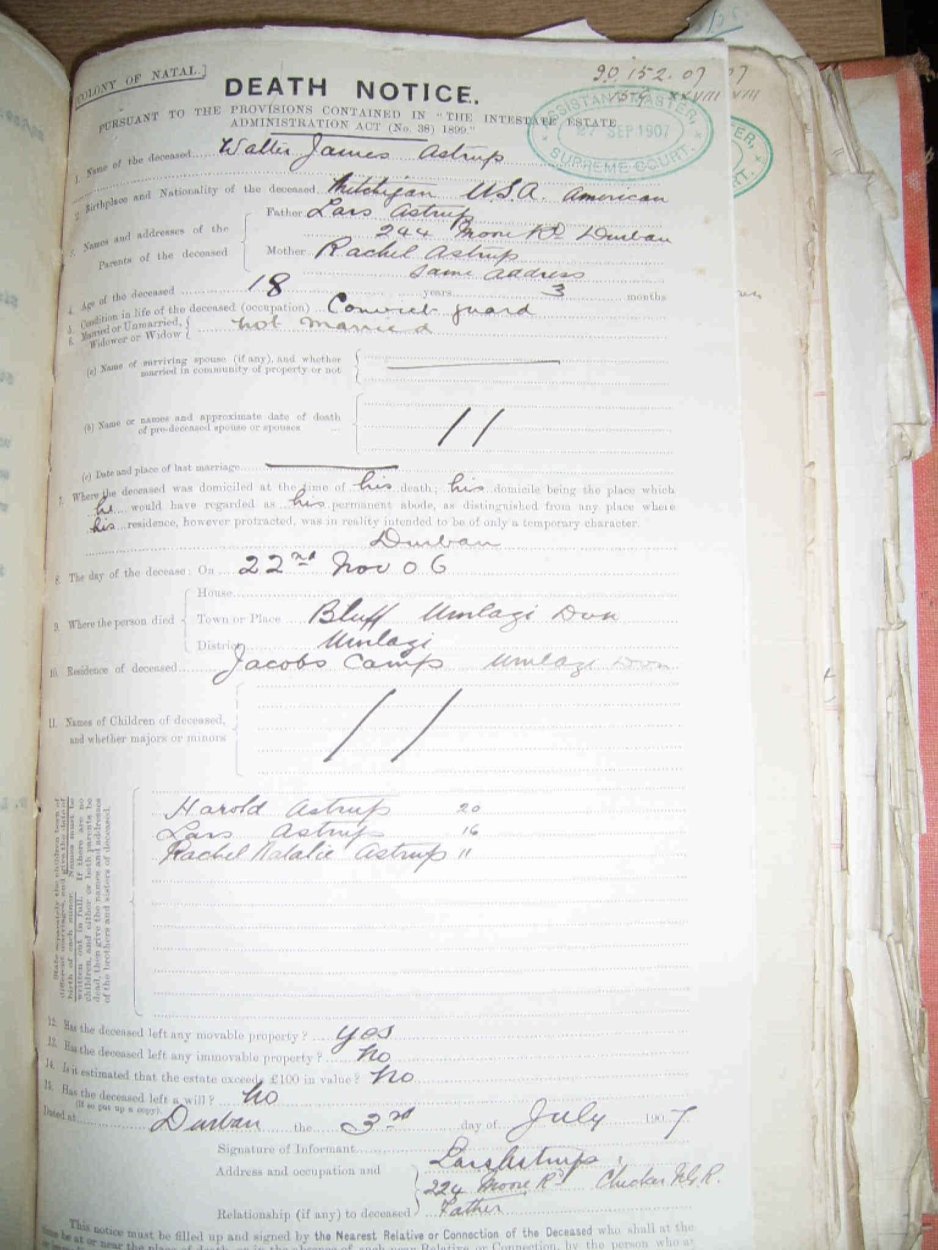 COLONY OF NATAL.]
90 152. 07 07
DEATH NOTICE.
PURSUANT TO THE PROVISIONS CONTAINED IN "THE INTESTATE ESTATE
ADMINISTRATION ACT (No. 38) 1899"
ASSISTANT MASTER,
27 SEP 1907
SUPREME COURT.
1. Name of the deceased Walter James Astrup
2. Birthplace and Nationality of the deceased Mitchigan U.S.A. American
3. Names and addresses of the Parents of the deceased
Father Lars Astrup
244 Moore Rd Durban
Mother Rachel Astrup
Same address
4. Age of the deceased 18 years 3 months
5. Condition in life of the deceased (occupation) Convict guard
6. Married or Unmarried, Widower or Widow not married
(a) Name of surviving spouse (if any), and whether
married in community of property or not
(b) Name or names and approximate date of death
of pre-deceased spouse or spouses ... 11
(c) Date and place of last marriage
7. Where the deceased was domiciled at the time of his death; his domicile being the place which
he would have regarded as his permanent abode, as distinguished from any place where
his residence, however protracted, was in reality intended to be of only a temporary character.
Durban
8. The day of the decease: On 22nd Nov 06
9. Where the person died
House
Town or Place Bluff Umlazi Don
District Umlazi
10. Residence of deceased Jacobs Camp Umlazi Don
11. Names of Children of deceased,
and whether majors or minors
State separately the children born of
different marriages, and give the date of
birth of each minor. Names must be
written out in full. If there are no
children, and either or both parents be
dead, then give the names and addresses
of the brothers and sisters of deceased.
Harold Astrup 20
Lars Astrup 16
Rachel Natalie Astrup 11
12. Has the deceased left any movable property? yes
13. Has the deceased left any immovable property? no
14. Is it estimated that the estate exceeds £100 in value? no
15. Has the deceased left a will? no
(If so put up a copy).
Dated at Durban the 3rd day of July 1907
Signature of Informant Lars Astrup
Address and occupation and 224 Moore Rd Checker N.G.R.
Relationship (if any) to deceased Father
This notice must be filled up and signed by the Nearest Relative or Connection of the Deceased who shall at the